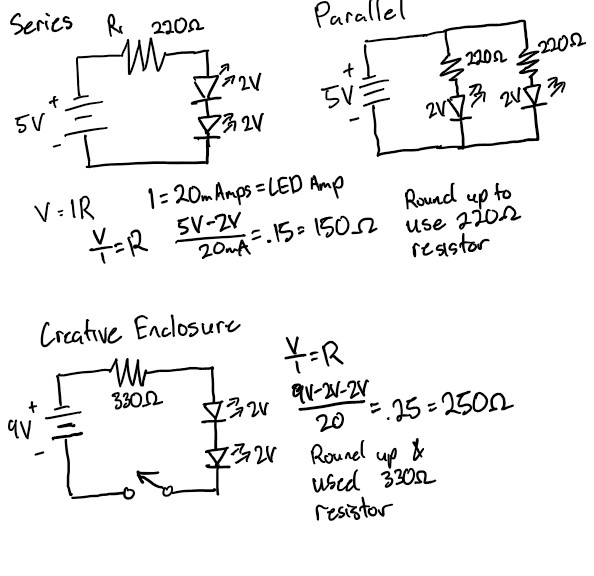 Series
R₁ 220Ω
+
5V
-
2V
2V
Parallel
+
5V
-
220Ω
2V
220Ω
2V
V=IR
I=20mAmps=LED Amp
V/I=R
5V-2V/20mA=.15=150Ω
Round up to
use 220Ω
resistor
Creative Enclosure
330Ω
+
9V
-
2V
2V
V/I=R
9V-2V-2V/20=.25=250Ω
Round up &
used 330Ω
resistor